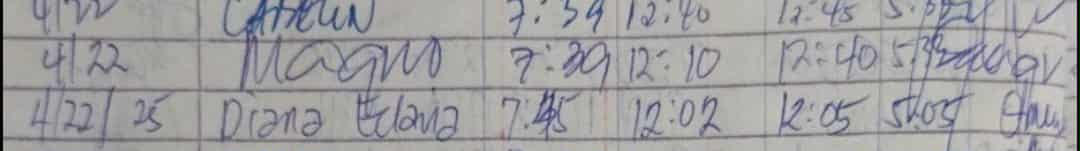 4/22 7:39 12:40 12:45
4/22 Magno 7:39 12:10 12:40
4/22/25 Diana Eclavia 7:45 12:02 12:05 5:05